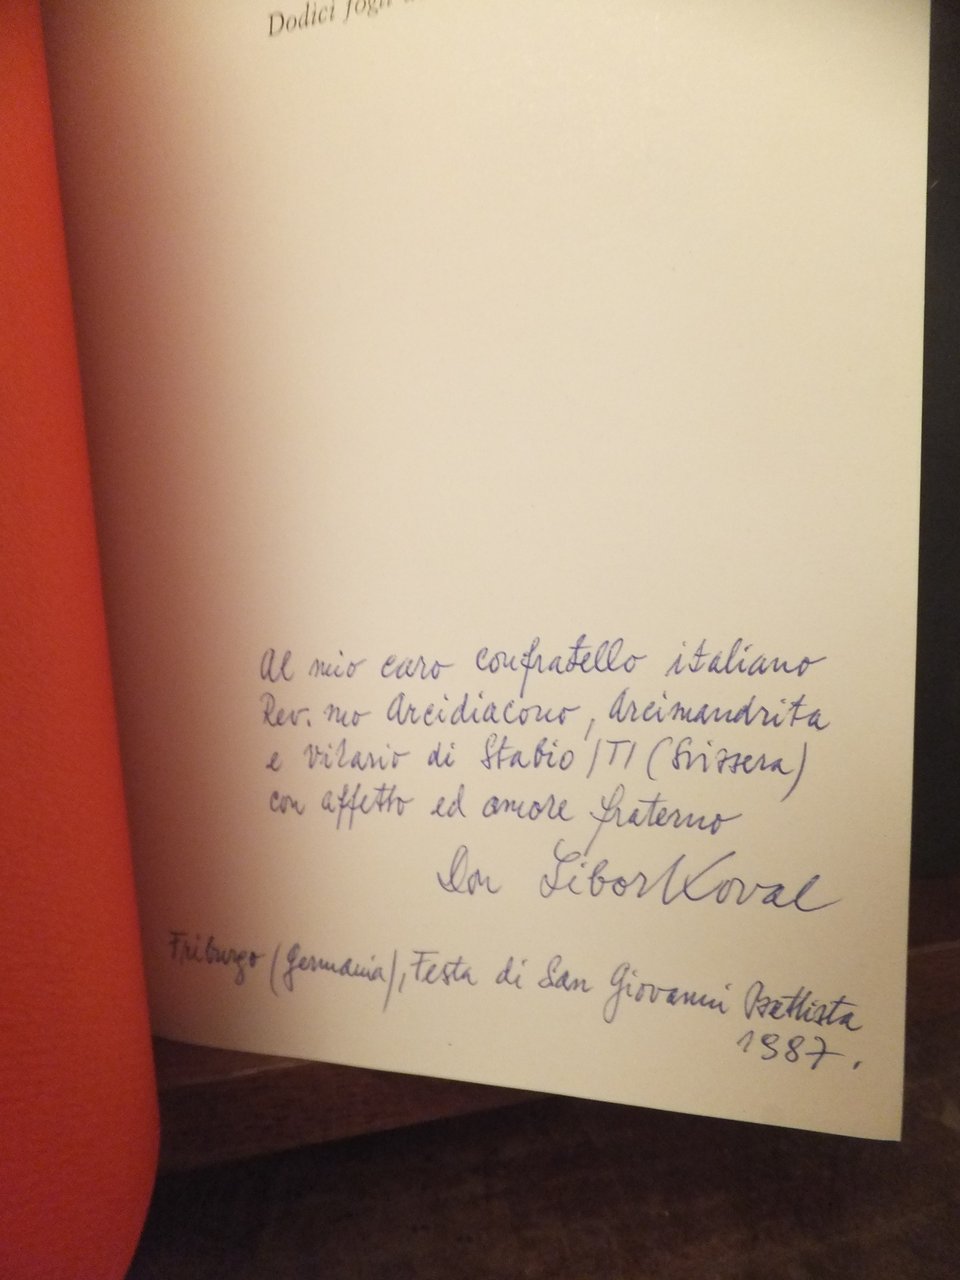 Dodici fogli
Al mio caro confratello italiano
Rev. mo Arcidiacono, Arcimandrita
e vilario di Stabio /TI (Svizzera)
con affetto ed amore fraterno
Don Libor Koval
Friburgo (Germania), Festa di San Giovanni Battista
1987.